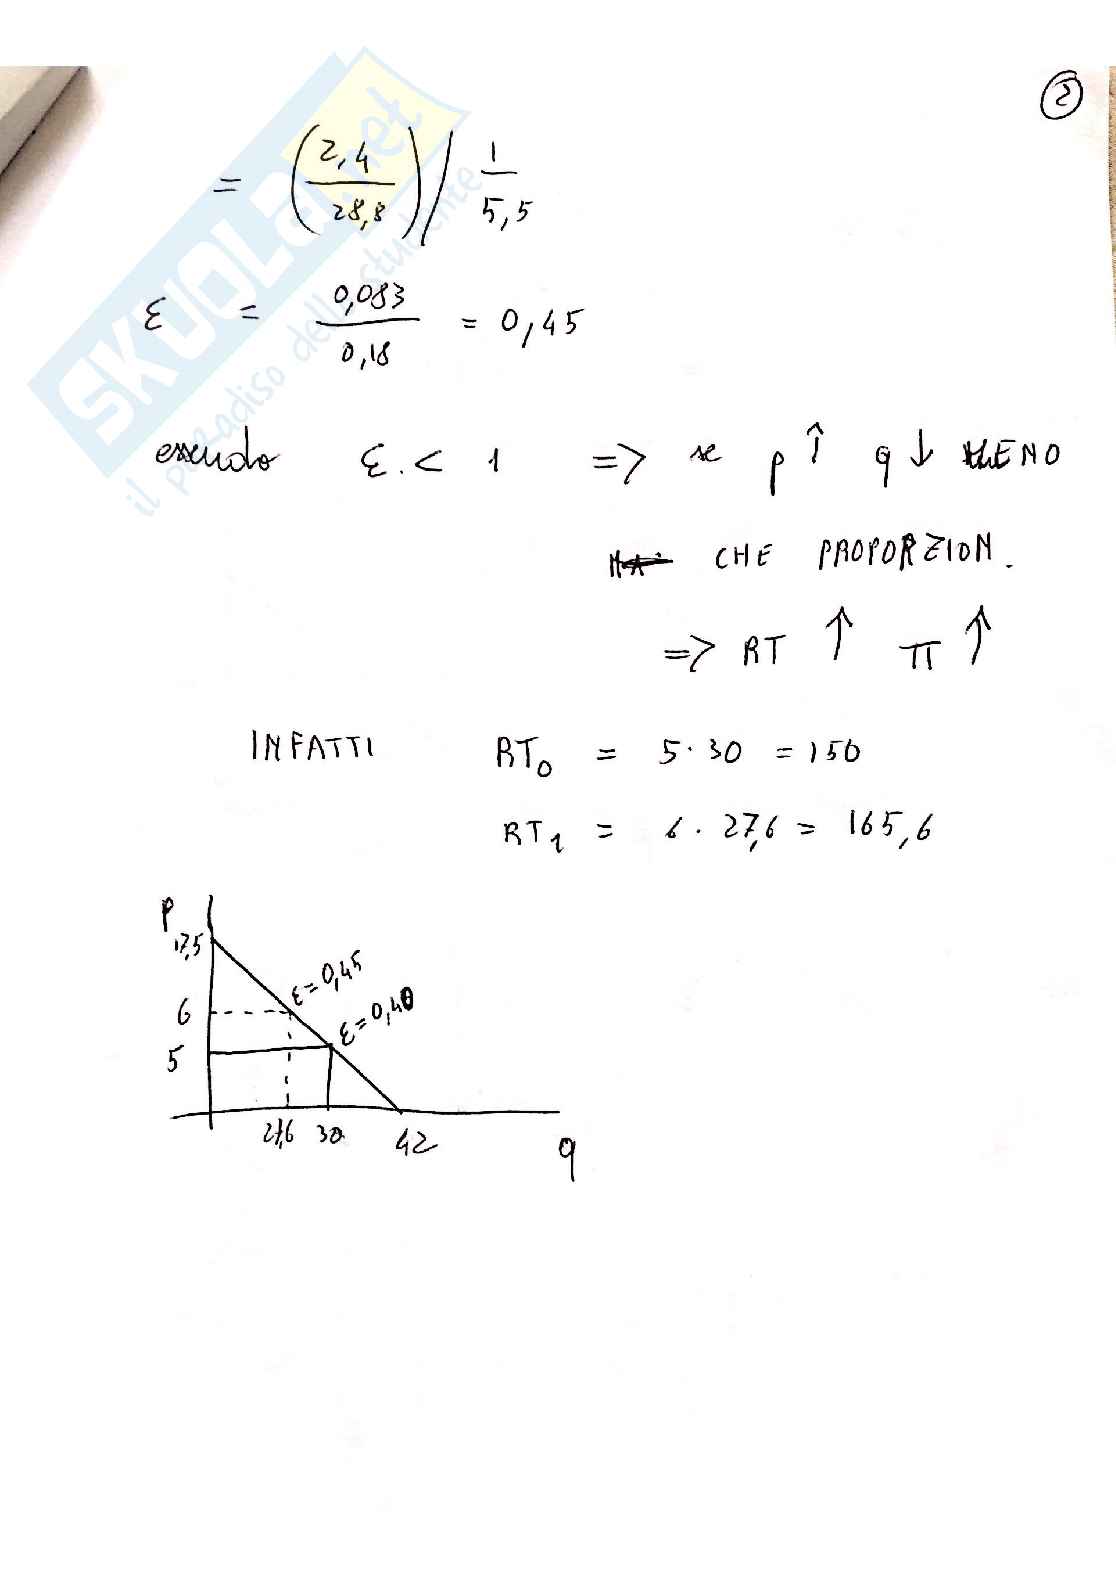 2
= (2,4 / 28,8) / 1 / 5,5
ε = 0,083 / 0,18 = 0,45
essendo ε. < 1 => se p ↑ q ↓ MENO
CHE PROPORZION.
=> RT ↑ π ↑
INFATTI RT0 = 5·30 = 150
RT1 = 6·27,6 = 165,6
P
17,5
ε=0,45
6
ε=0,40
5
27,6 30 42
q
SKUOLA.net
il paradiso dello studente